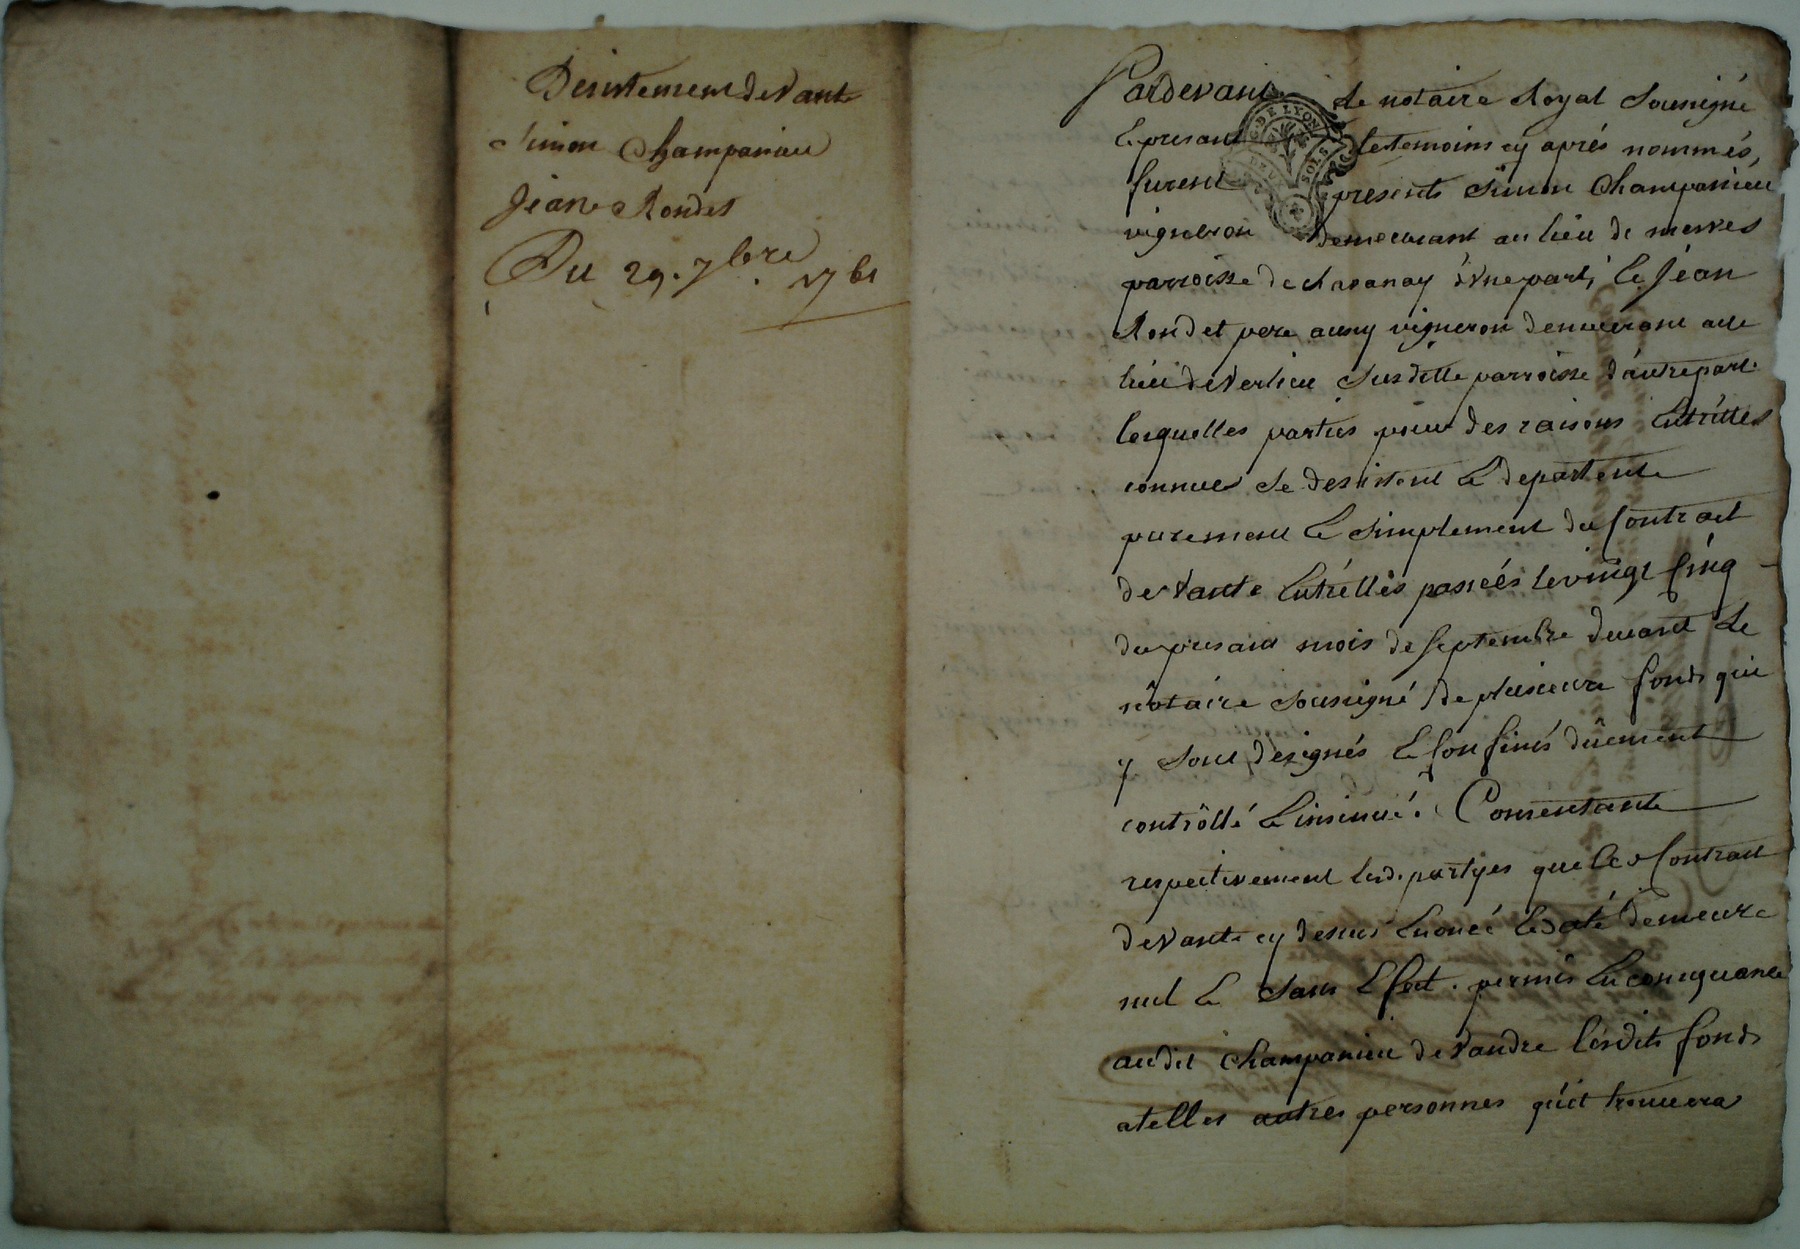 Desistement de Vante
Simon Champanieu
Jean Rondet
Du 29. 7bre. 1761
Pardevant le notaire Royal Sousigné
G. DE LYON
SOLS
Epresant les temoins cy aprés nommés,
furent presents Simon Champanieu
vigneron demeurant au lieu de merves
parroisse de chavanay d'Vne part, Ee Jean
Rondet pere aussy vigneron demeurant au
lieu de Verlieu Susditte parroisse d'autre part
lesquelles parties pour des raisons Entr'elles
connues se desistent Ee departente
purement Ee Simplement du Contract
de Vante Entr'elles passées le vingt Cinq
du presant mois de Septembre devant le
nôtaire Sousigné de plusieurs fonds qui
y Sont désignés Ee Confinés dûement
contrôllé Ee insinué. Consentante
respectivement lesd. partyes que le Contract
de Vante cy dessus Enoncé Ee daté demeure
nul Ee Sans Effect. permis En consequance
audit Champanieu de Vandre lesdits fonds
a telles autres personnes qu'il trouvera